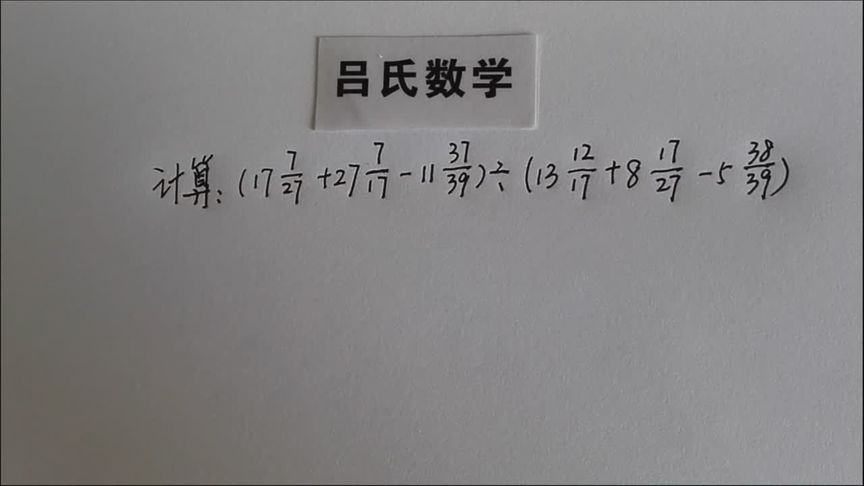 吕氏数学
计算:(17 7/27 + 27 7/17 - 11 37/39) ÷ (13 12/17 + 8 17/27 - 5 38/39)